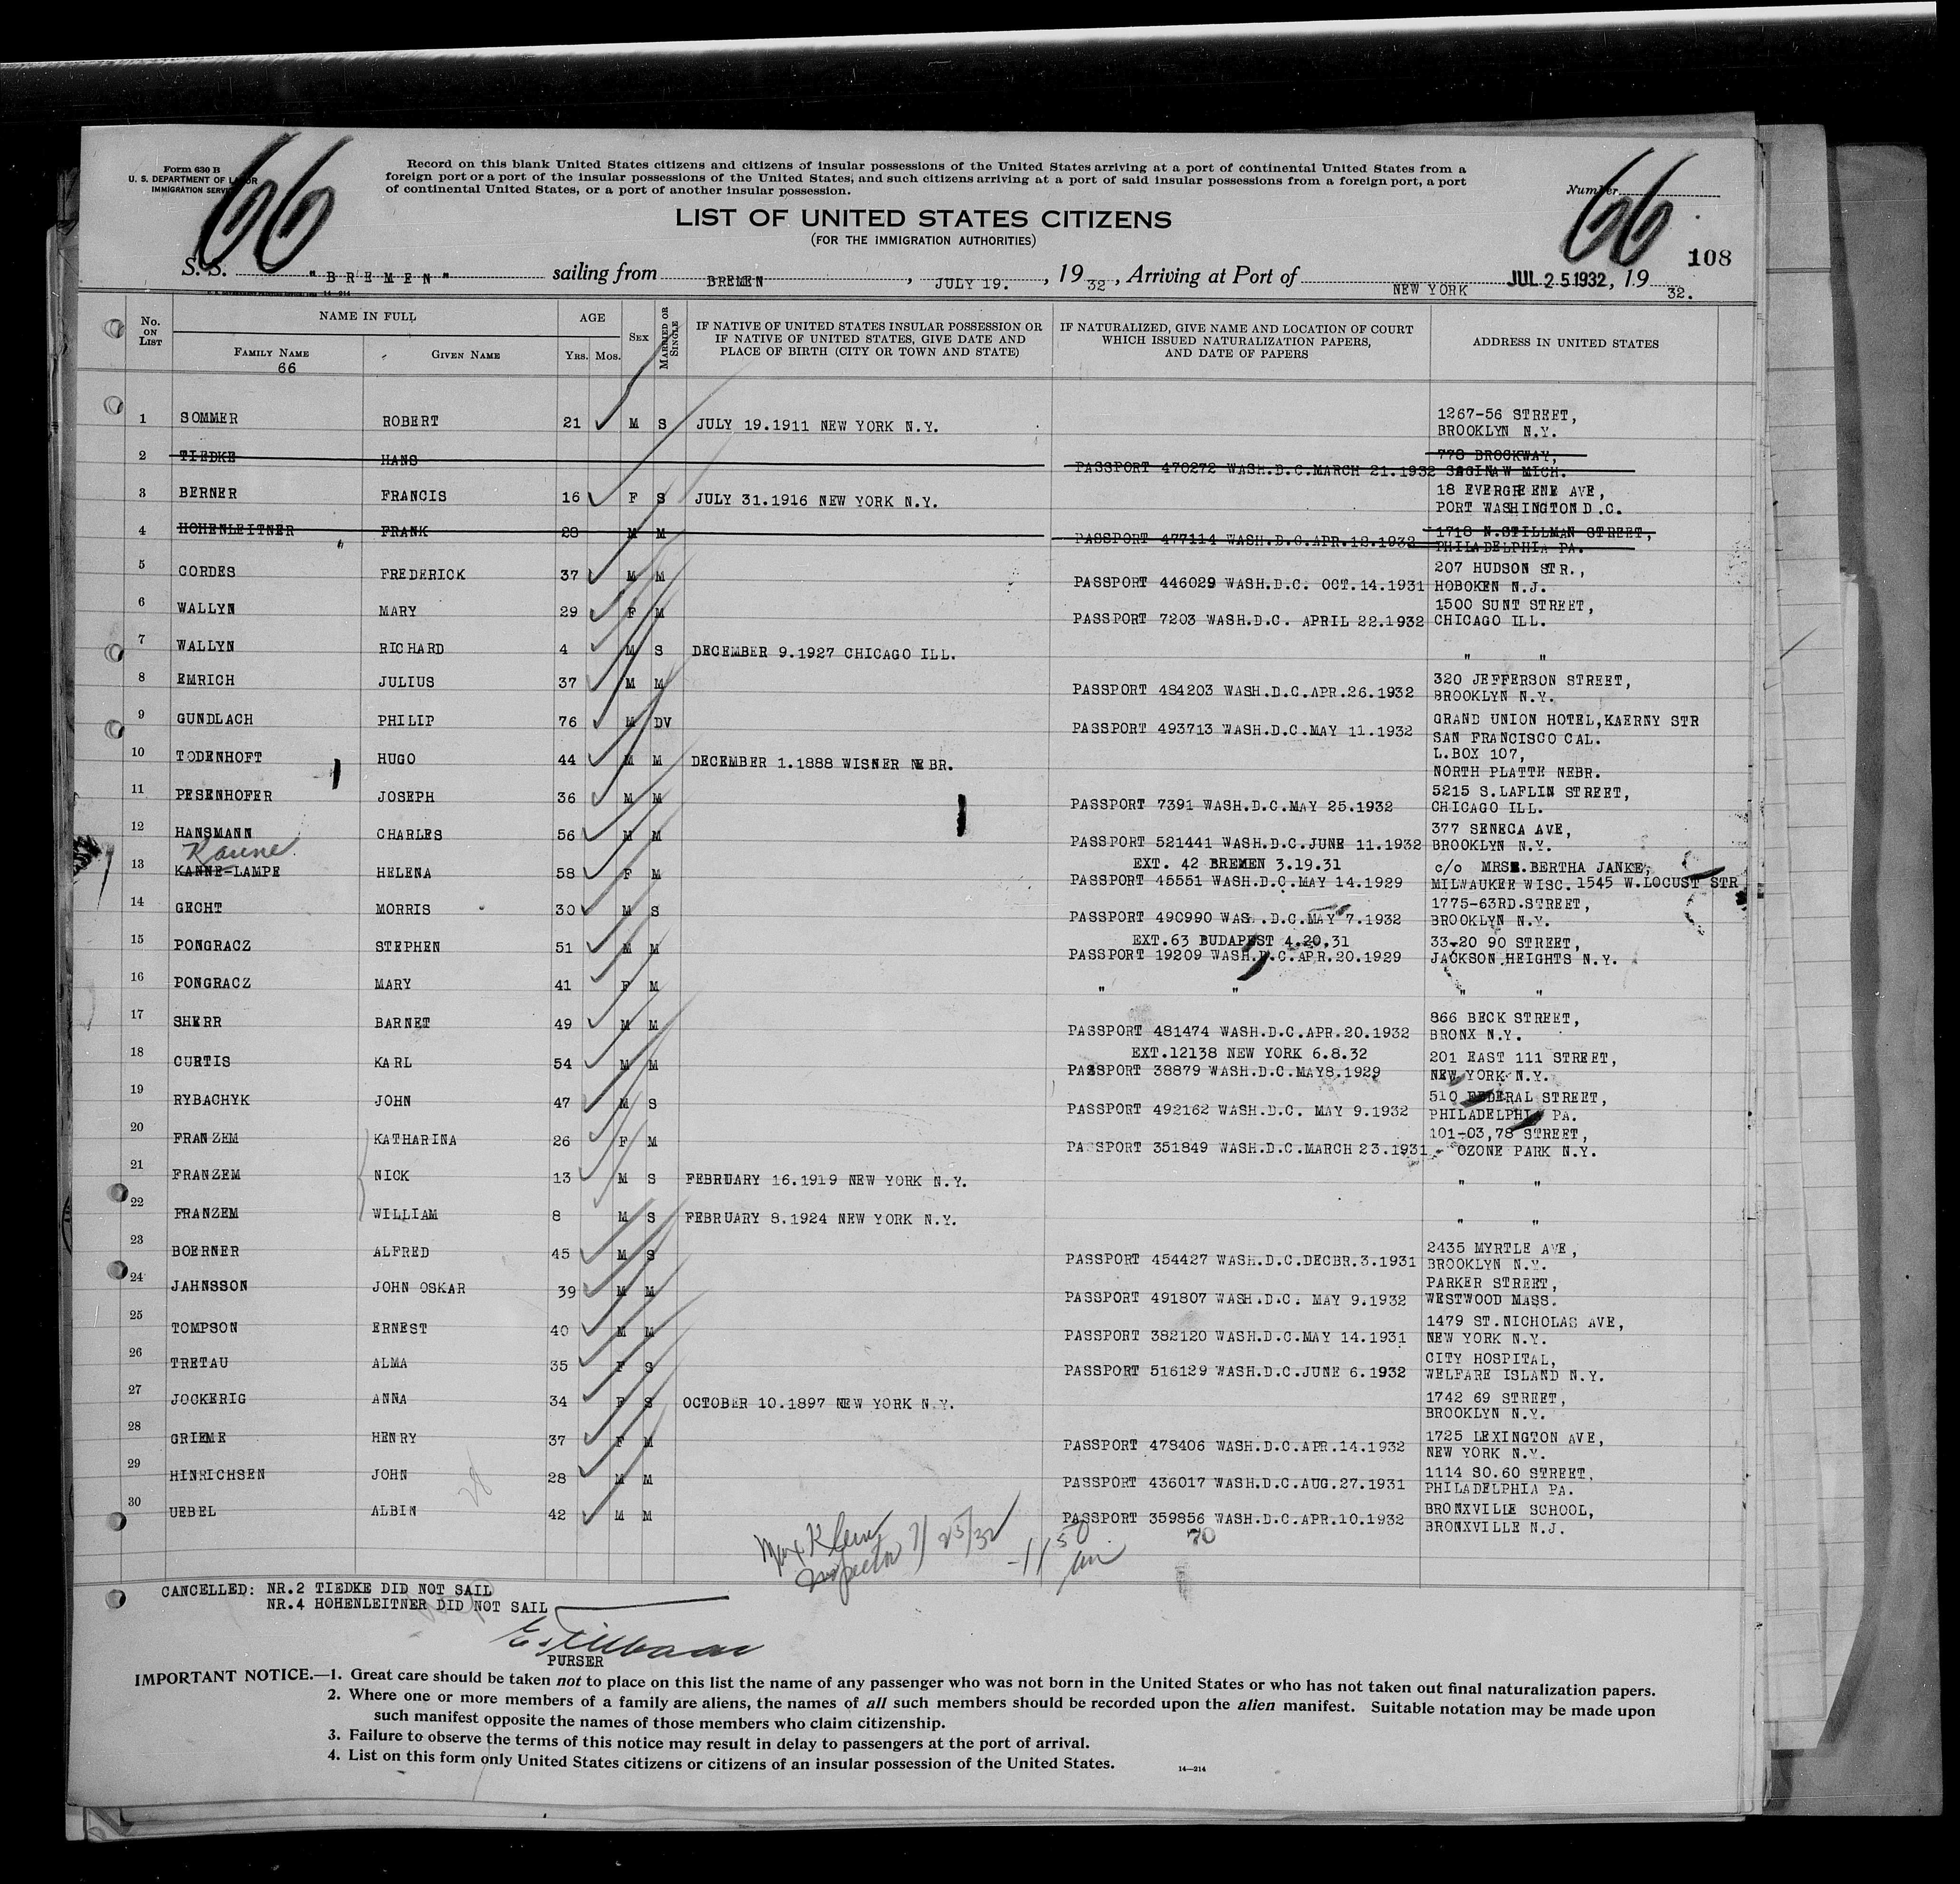 Form 630 B
U. S. DEPARTMENT OF LABOR
IMMIGRATION SERVICE
66
Record on this blank United States citizens and citizens of insular possessions of the United States arriving at a port of continental United States from a
foreign port or a port of the insular possessions of the United States, and such citizens arriving at a port of said insular possessions from a foreign port, a port
of continental United States, or a port of another insular possession.
Number
66
108
LIST OF UNITED STATES CITIZENS
(FOR THE IMMIGRATION AUTHORITIES)
S. S. "BREMEN" sailing from BREMEN, JULY 19., 1932, Arriving at Port of NEW YORK JUL 25 1932, 1932.
14—214
No. ON LIST NAME IN FULL AGE SEX MARRIED OR SINGLE IF NATIVE OF UNITED STATES INSULAR POSSESSION OR IF NATIVE OF UNITED STATES, GIVE DATE AND PLACE OF BIRTH (CITY OR TOWN AND STATE) IF NATURALIZED, GIVE NAME AND LOCATION OF COURT WHICH ISSUED NATURALIZATION PAPERS, AND DATE OF PAPERS ADDRESS IN UNITED STATES
FAMILY NAME GIVEN NAME YRS. MOS.
66
1 SOMMER ROBERT 21 M S JULY 19.1911 NEW YORK N.Y. 1267-56 STREET, BROOKLYN N.Y.
2 TIEDKE HANS PASSPORT 470272 WASH.D.C.MARCH 21.1932 778 BROCKWAY, SAGINAW MICH.
3 BERNER FRANCIS 16 F S JULY 31.1916 NEW YORK N.Y. 18 EVERGREENE AVE, PORT WASHINGTON D.C.
4 HOHENLEITNER FRANK 28 M M PASSPORT 477114 WASH.D.C.APR.12.1932 1718 N.STILLMAN STREET, PHILADELPHIA PA.
5 CORDES FREDERICK 37 M M PASSPORT 446029 WASH.D.C. OCT.14.1931 207 HUDSON STR., HOBOKEN N.J.
6 WALLYN MARY 29 F M PASSPORT 7203 WASH.D.C. APRIL 22.1932 1500 SUNT STREET, CHICAGO ILL.
7 WALLYN RICHARD 4 M S DECEMBER 9.1927 CHICAGO ILL. " "
8 EMRICH JULIUS 37 M M PASSPORT 484203 WASH.D.C.APR.26.1932 320 JEFFERSON STREET, BROOKLYN N.Y.
9 GUNDLACH PHILIP 76 M DV PASSPORT 493713 WASH.D.C.MAY 11.1932 GRAND UNION HOTEL,KAERNY STR SAN FRANCISCO CAL.
10 TODENHOFT HUGO 44 M M DECEMBER 1.1888 WISNER NEBR. L.BOX 107, NORTH PLATTE NEBR.
11 PESENHOFER JOSEPH 36 M M PASSPORT 7391 WASH.D.C.MAY 25.1932 5215 S.LAFLIN STREET, CHICAGO ILL.
12 HANSMANN CHARLES 56 M M PASSPORT 521441 WASH.D.C.JUNE 11.1932 377 SENECA AVE, BROOKLYN N.Y.
Kanne
13 KANNE-LAMPE HELENA 58 F M EXT. 42 BREMEN 3.19.31 PASSPORT 45551 WASH.D.C.MAY 14.1929 c/o MRS.BERTHA JANKE, MILWAUKEE WISC. 1545 W.LOCUST STR
14 GECHT MORRIS 30 M S PASSPORT 490990 WAS.D.C.MAY 7.1932 1775-63RD.STREET, BROOKLYN N.Y.
15 PONGRACZ STEPHEN 51 M M EXT.63 BUDAPEST 4.20.31 PASSPORT 19209 WASH.D.C.APR.20.1929 33-20 90 STREET, JACKSON HEIGHTS N.Y.
16 PONGRACZ MARY 41 F M " " " "
17 SHERR BARNET 49 M M PASSPORT 481474 WASH.D.C.APR.20.1932 866 BECK STREET, BRONX N.Y.
18 CURTIS KARL 54 M M EXT.12138 NEW YORK 6.8.32 PASSPORT 38879 WASH.D.C.MAY8.1929 201 EAST 111 STREET, NEW YORK N.Y.
19 RYBACHYK JOHN 47 M S PASSPORT 492162 WASH.D.C. MAY 9.1932 510 FEDERAL STREET, PHILADELPHIA PA.
20 FRANZEM KATHARINA 26 F M PASSPORT 351849 WASH.D.C.MARCH 23.1931 101-03,78 STREET, OZONE PARK N.Y.
21 FRANZEM NICK 13 M S FEBRUARY 16.1919 NEW YORK N.Y. " "
22 FRANZEM WILLIAM 8 M S FEBRUARY 8.1924 NEW YORK N.Y. " "
23 BOERNER ALFRED 45 M S PASSPORT 454427 WASH.D.C.DECBR.3.1931 2435 MYRTLE AVE, BROOKLYN N.Y.
24 JAHNSSON JOHN OSKAR 39 M M PASSPORT 491807 WASH.D.C. MAY 9.1932 PARKER STREET, WESTWOOD MASS.
25 TOMPSON ERNEST 40 M M PASSPORT 382120 WASH.D.C.MAY 14.1931 1479 ST.NICHOLAS AVE, NEW YORK N.Y.
26 TRETAU ALMA 35 F S PASSPORT 516129 WASH.D.C.JUNE 6.1932 CITY HOSPITAL, WELFARE ISLAND N.Y.
27 JOCKERIG ANNA 34 F S OCTOBER 10.1897 NEW YORK N.Y. 1742 69 STREET, BROOKLYN N.Y.
28 GRIEME HENRY 37 F M PASSPORT 478406 WASH.D.C.APR.14.1932 1725 LEXINGTON AVE, NEW YORK N.Y.
29 HINRICHSEN JOHN 28 M M PASSPORT 436017 WASH.D.C.AUG.27.1931 1114 SO.60 STREET, PHILADELPHIA PA.
28
30 UEBEL ALBIN 42 M M PASSPORT 359856 WASH.D.C.APR.10.1932 BRONXVILLE SCHOOL, BRONXVILLE N.J.
Max Klein
Inspector 7/25/32 -11 50
70
CANCELLED: NR.2 TIEDKE DID NOT SAIL
NR.4 HOHENLEITNER DID NOT SAIL
PURSER
IMPORTANT NOTICE.—1. Great care should be taken not to place on this list the name of any passenger who was not born in the United States or who has not taken out final naturalization papers.
2. Where one or more members of a family are aliens, the names of all such members should be recorded upon the alien manifest. Suitable notation may be made upon
such manifest opposite the names of those members who claim citizenship.
3. Failure to observe the terms of this notice may result in delay to passengers at the port of arrival.
4. List on this form only United States citizens or citizens of an insular possession of the United States.
14—214